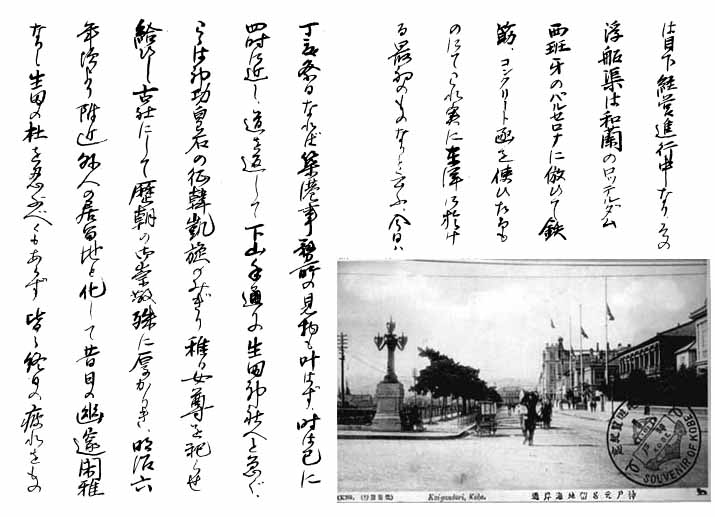 は目下経営進行中なりその
浮船渠は和蘭のロッテルダム
西班牙のバルセロナに倣ひて鉄
筋、コンクリート函を使ひたるも
のにてこれ実に東洋に於け
る最初のものなりと云ふ、今日は
丁度祭日なれば築港事務所の見物も叶はず、時は已に
四時に近し、道を返して下山手通りに生田神社へと急ぐ、
こゝは神功皇后の征韓凱旋のみぎり稚日女尊を祀らせ
給ひし古社にして歴朝の御崇敬殊に厚かりき、明治六
年頃より附近外人の居留地と化して昔日の幽邃閑雅
なりし生田の杜を忍ぶべくもあらず 皆々終日の疲れをもの
SOUVENIR OF KOBE
Kaigandori, Kobe.
通岸海地留居元戸神